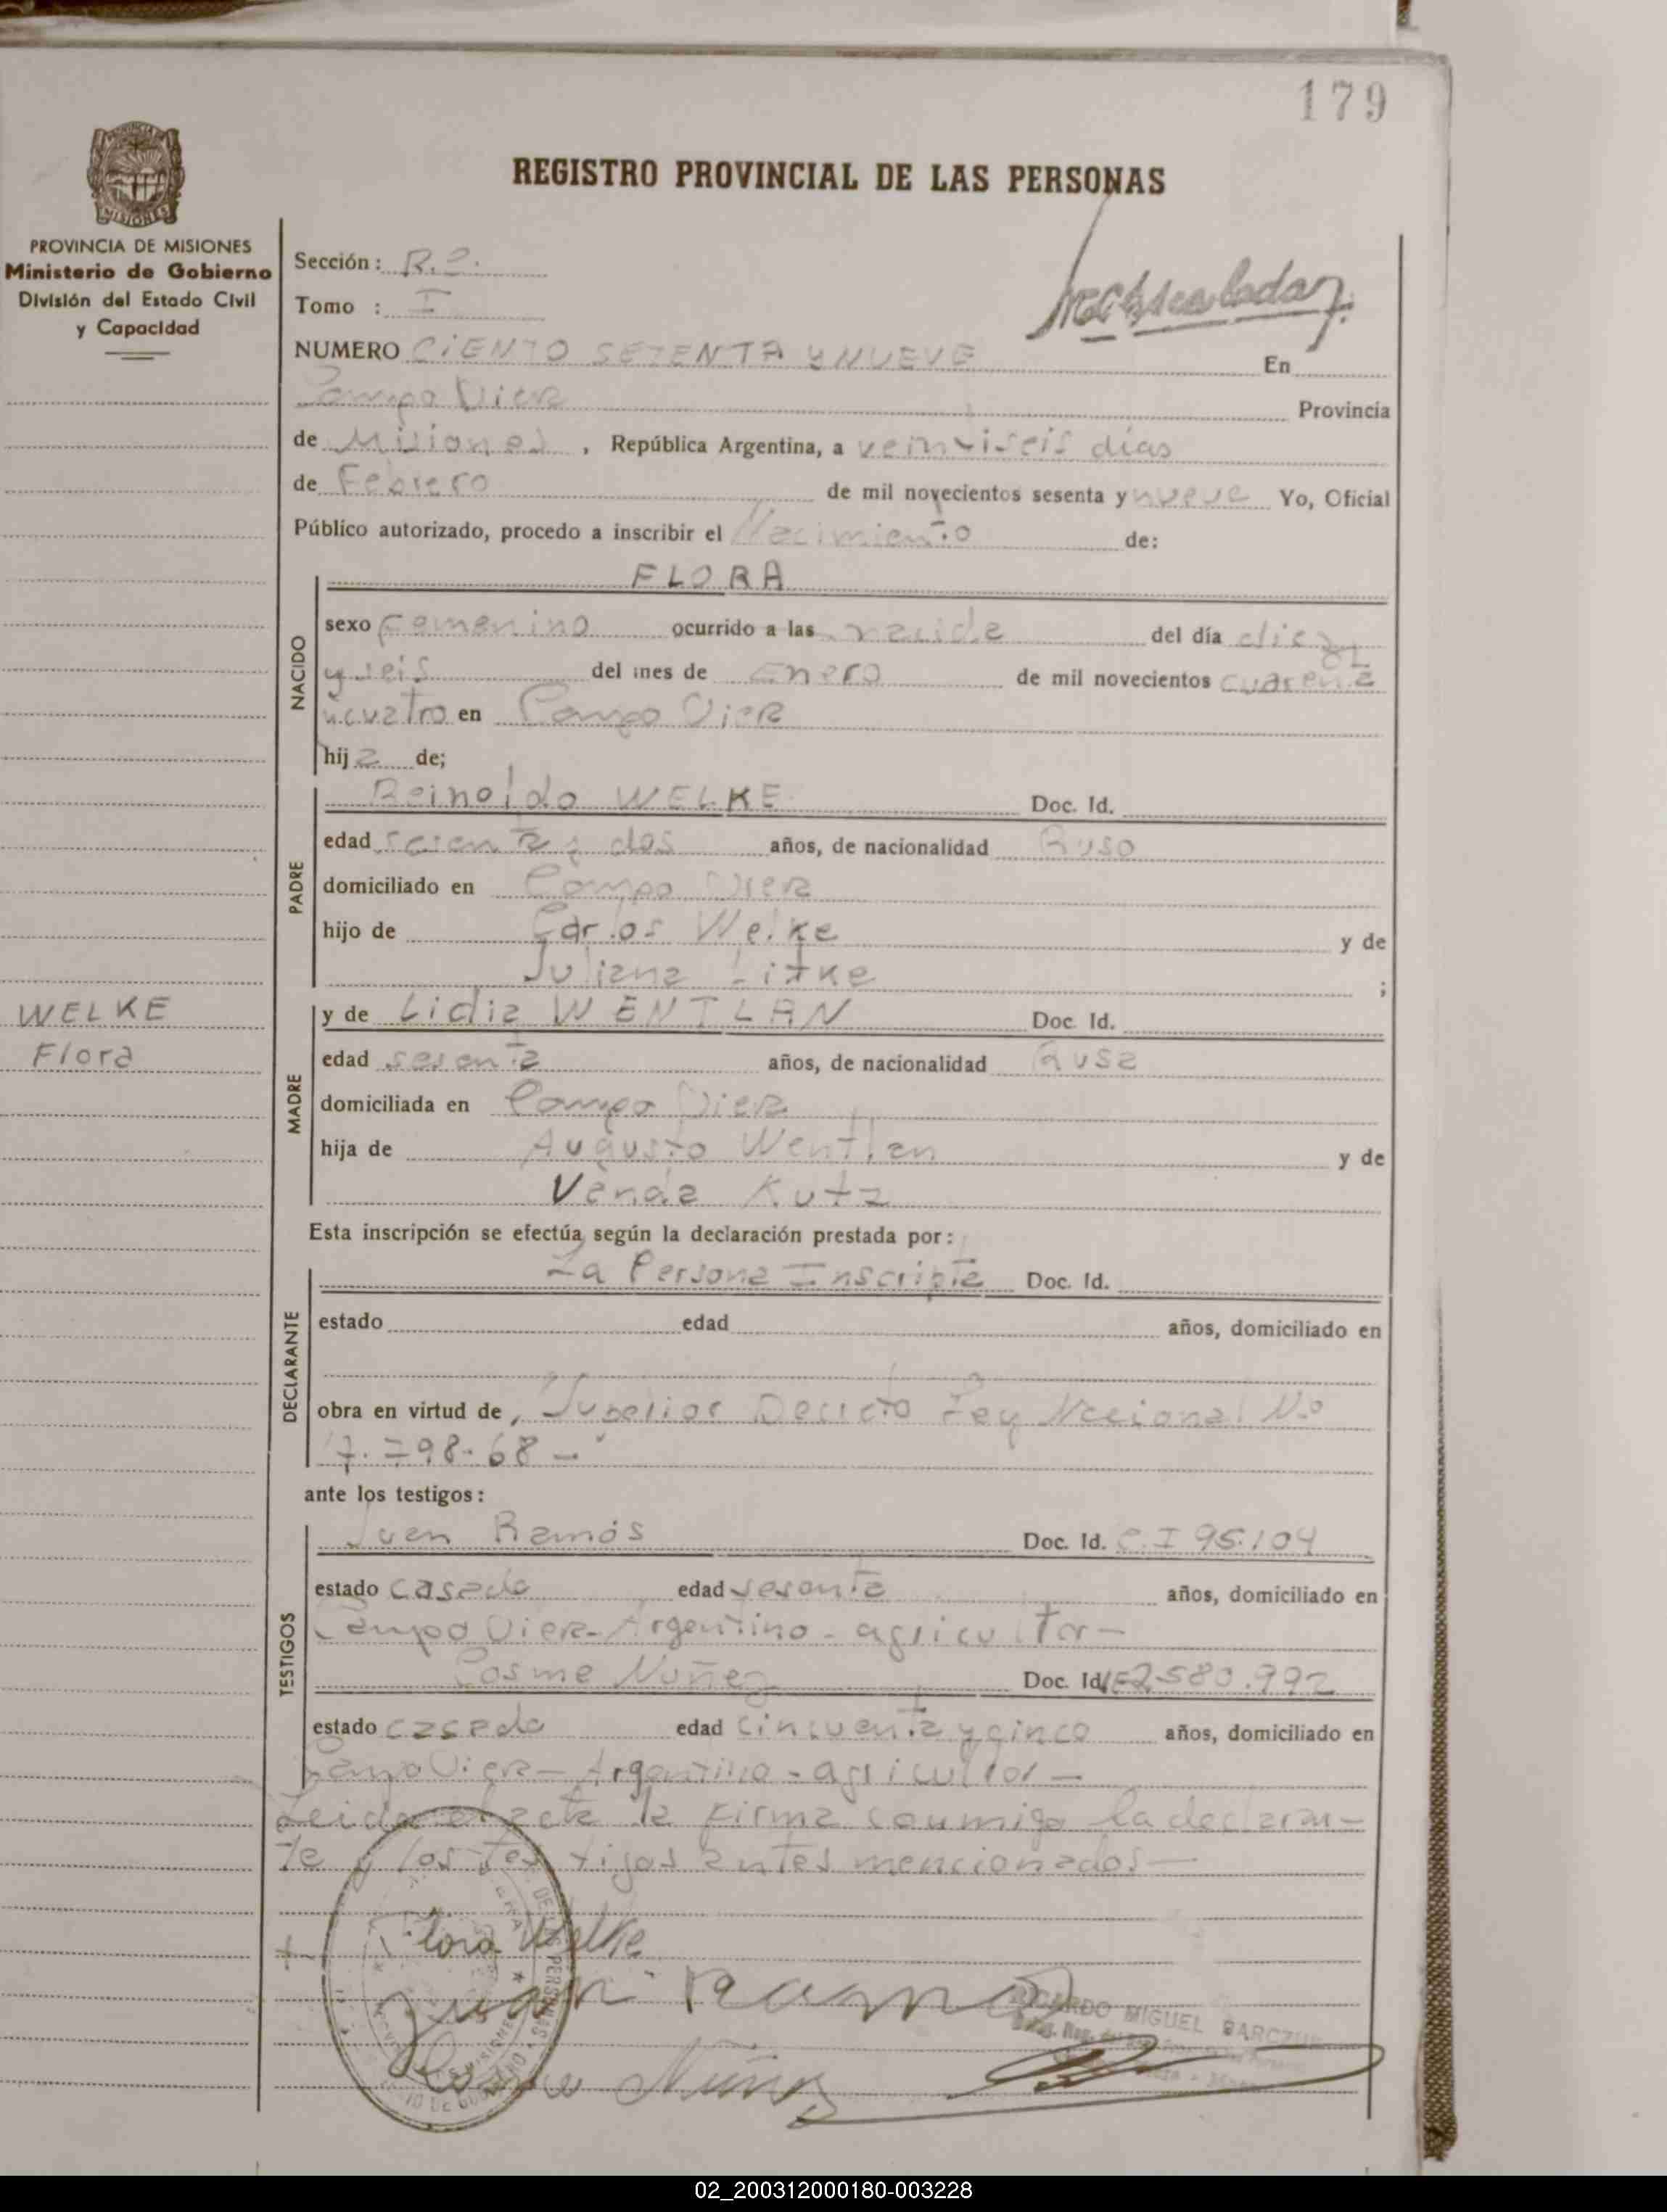 179
REGISTRO PROVINCIAL DE LAS PERSONAS
MISIONES
PROVINCIA DE MISIONES
Ministerio de Gobierno
División del Estado Civil
y Capacidad
Sección: R.
Tomo : I
NUMERO CIENTO SETENTA Y NUEVE En
Campo Viera Provincia
de Misiones, República Argentina, a veintiseis días
de Febrero de mil novecientos sesenta y nueve Yo, Oficial
Público autorizado, procedo a inscribir el Nacimiento de:
FLORA
NACIDO
sexo Femenino ocurrido a las nacida del día diez
y seis del mes de Enero de mil novecientos cuarenta
y cuatro en Campo Viera
hija de;
PADRE
Reinoldo WELKE Doc. Id.
edad sesenta y dos años, de nacionalidad Ruso
domiciliado en Campo Viera
hijo de Carlos Welke y de
Juliana Litke ;
WELKE
Flora
MADRE
y de Lidia WENTLAN Doc. Id.
edad sesenta años, de nacionalidad Rusa
domiciliada en Campo Viera
hija de Augusto Wentlan y de
Venda Kutz
Esta inscripción se efectúa según la declaración prestada por:
DECLARANTE
La Persona Inscripta Doc. Id.
estado edad años, domiciliado en
obra en virtud de, Superior Decreto Ley Nacional N.o
17.798-68-
ante los testigos:
TESTIGOS
Juan Ramós Doc. Id. C.I 95.104
estado casado edad sesenta años, domiciliado en
Campo Viera-Argentino-agricultor-
Cosme Nuñez Doc. Id. 2580.992
estado casado edad cincuenta y cinco años, domiciliado en
Campo Viera-Argentino-agricultor-
Leida el acta la firma conmigo la declaran-
te y los testigos antes mencionados-
Flora Welke
Juan Ramos
RICARDO MIGUEL BARCZUK
Cosme Núñez
02_200312000180-003228